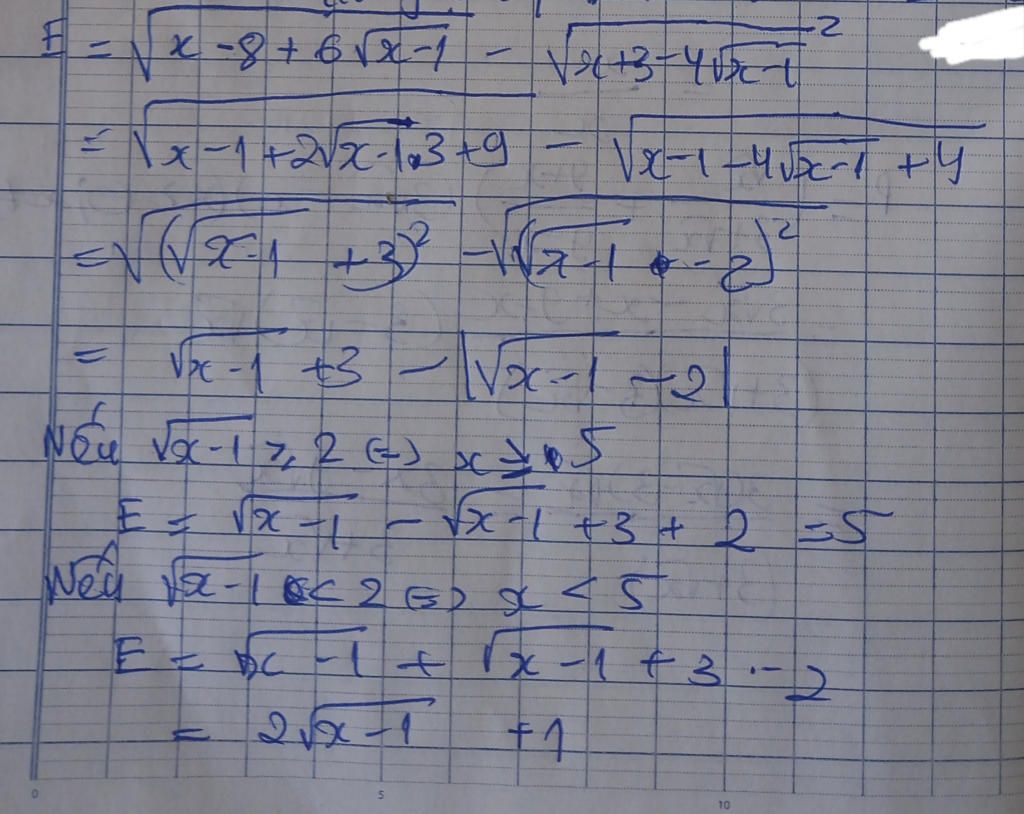 E = √(x - 8 + 6√(x-1)) - √(x+3-4√(x-1))²
= √(x-1+2√(x-1).3+9) - √(x-1-4√(x-1)+4)
= √((√(x-1) +3)²) - √((√(x-1) - 2)²)
= √(x-1) +3 - |√(x-1) - 2|
Nếu √(x-1) ≥ 2 (=) x ≥ 5
E = √(x-1) - √(x-1) + 3 + 2 = 5
Nếu √(x-1) < 2 (=) x < 5
E = √(x-1) + √(x-1) + 3 - 2
= 2√(x-1) + 1
0 5 10